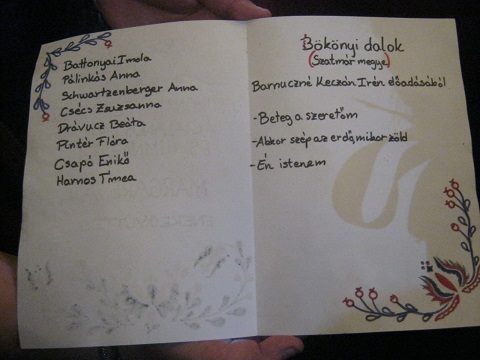 Battonyai Imola
Pálinkás Anna
Schwartzenberger Anna
Csécs Zsuzsanna
Drávucz Beáta
Pintér Flóra
Csapó Enikő
Harnos Tímea
Bökönyi dalok
(Szatmár megye)
Barnuczné Keczán Irén előadásából
-Beteg a szeretőm
-Akkor szép az erdő, mikor zöld
-Én istenem